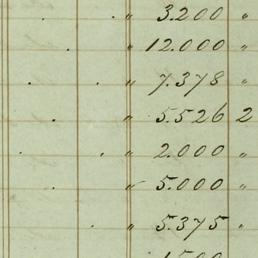 " 3.200 "
" 12.000 "
" 7.378 "
" 5.526 2
" 2.000 "
" 5.000 "
" 5.375 "